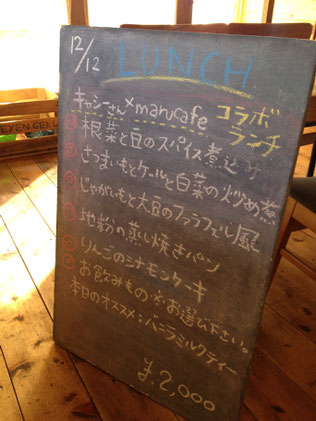 12/12 LUNCH
キャシーさん×marucafe コラボランチ
根菜と豆のスパイス煮込み
さつまいもとケールと白菜の炒め煮
じゃがいもと大豆のファラフェル風
地粉の蒸し焼きパン
りんごのシナモンケーキ
お飲みもの お選び下さい。
本日のオススメ:バニラミルクティー
¥2,000